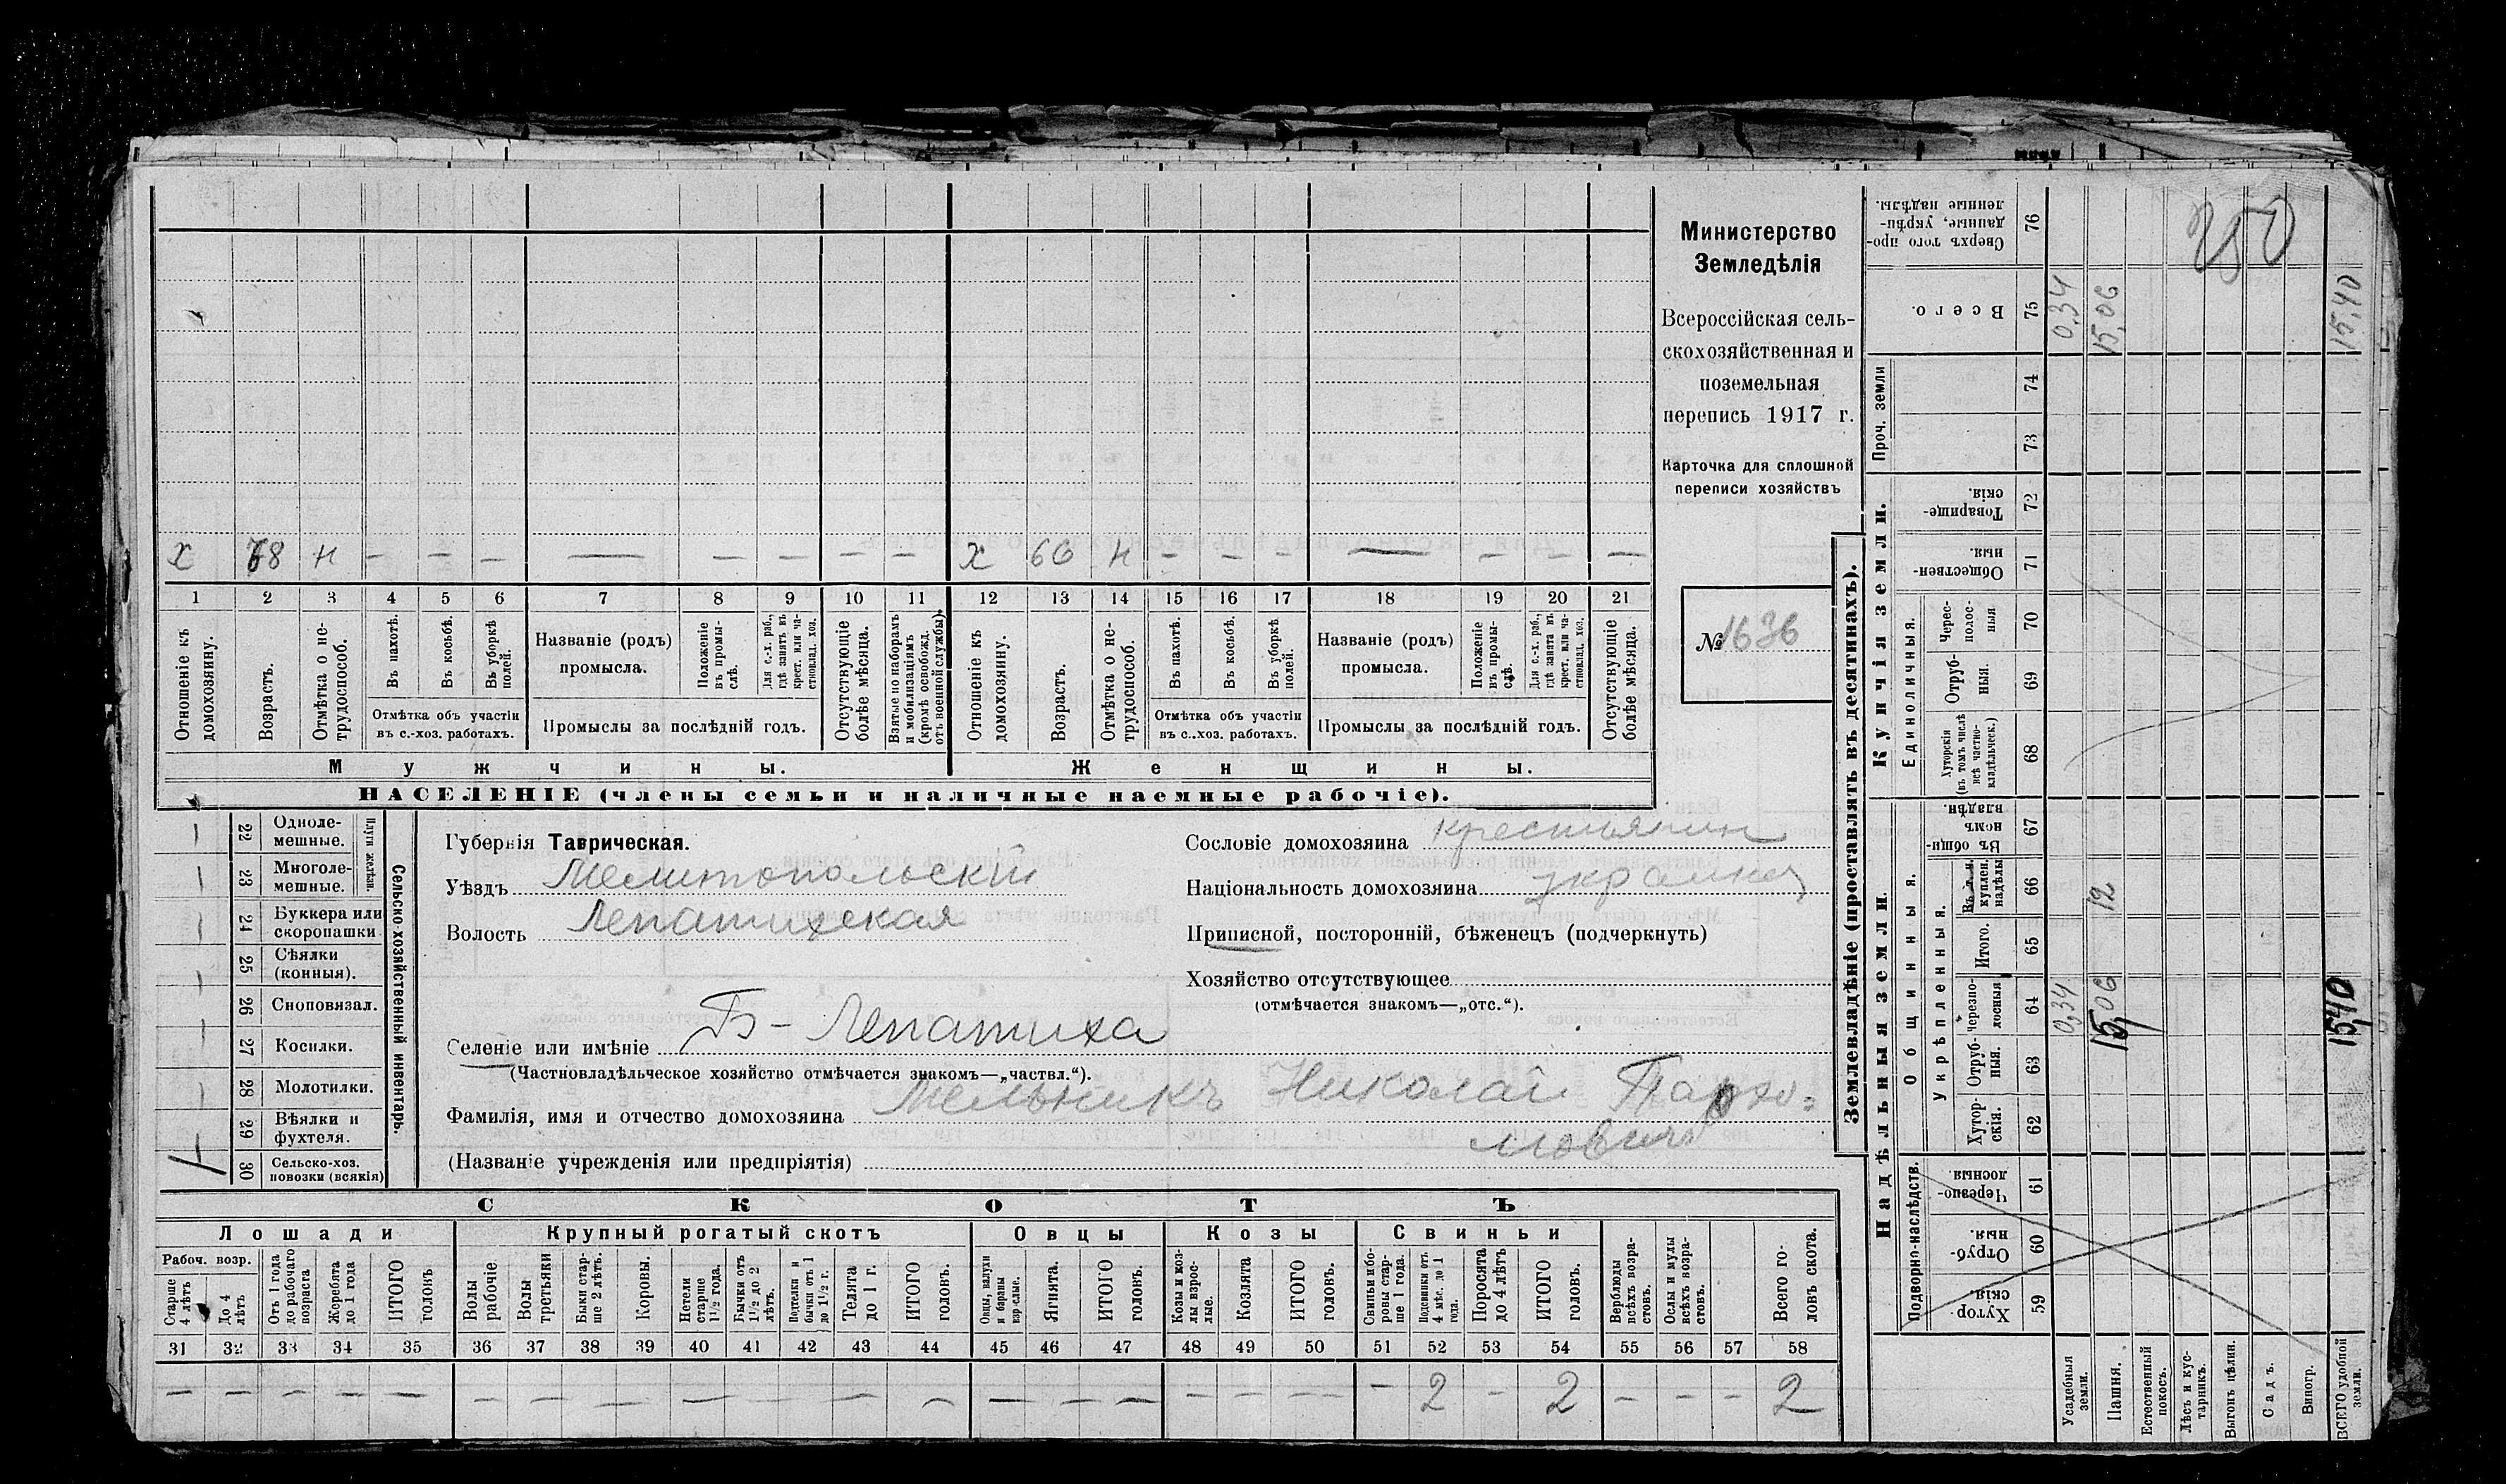 Министерство
Земледѣлія
Всероссійская сель-
скохозяйственная и
поземельная
перепись 1917 г.
Карточка для сплошной
переписи хозяйствъ
№ 1636
х 68 н — — — — — — — — х 66 н — — — — — — —
1 2 3 4 5 6 7 8 9 10 11 12 13 14 15 16 17 18 19 20 21
Отношеніе къ домохозяину.
Возрастъ.
Отмѣтка о не-трудоспособ.
Въ пахотѣ.
Въ косьбѣ.
Въ уборкѣ полей.
Отмѣтка объ участіи
въ с.-хоз. работахъ.
Названіе (родъ)
промысла.
Положеніе въ промы-слѣ.
Для с.-х. раб., гдѣ занятъ въ крест. или ча-стновлад. хоз.
Промыслы за послѣдній годъ.
Отсутствующіе болѣе мѣсяца.
Взятые по наборамъ и мобилизаціямъ (кромѣ освобожд. отъ военной службы).
Отношеніе къ домохозяину.
Возрастъ.
Отмѣтка о не-трудоспособ.
Въ пахотѣ.
Въ косьбѣ.
Въ уборкѣ полей.
Отмѣтка объ участіи
въ с.-хоз. работахъ.
Названіе (родъ)
промысла.
Положеніе въ промы-слѣ.
Для с.-х. раб., гдѣ занята въ крест. или ча-стновлад. хоз.
Промыслы за послѣдній годъ.
Отсутствующіе болѣе мѣсяца.
Мужчины. Женщины.
НАСЕЛЕНІЕ (члены семьи и наличные наемные рабочіе).
Сельско-хозяйственный инвентарь.
Плуги желѣзн.
22 Одноле-мешные. —
23 Многоле-мешные. —
24 Буккера или скоропашки —
25 Сѣялки (конныя). —
26 Сноповязал. —
27 Косилки. —
28 Молотилки. —
29 Вѣялки и фухтеля. —
30 Сельско-хоз. повозки (всякія) 1
Губернія Таврическая.
Уѣздъ Мелитопольскій
Волость Лепатихская
Селеніе или имѣніе Б-Лепатиха
(Частновладѣльческое хозяйство отмѣчается знакомъ—„частвл.“).
Фамилія, имя и отчество домохозяина Мельникъ Николай Пархо=
мовичъ
(Названіе учрежденія или предпріятія)
Сословіе домохозяина крестьянин
Національность домохозяина украинец
Приписной, посторонній, бѣженецъ (подчеркнуть)
Хозяйство отсутствующее
(отмѣчается знакомъ—„отс.“).
СКОТЪ
Лошади Крупный рогатый скотъ Овцы Козы Свиньи
Рабоч. возр.
Старше 4 лѣтъ
До 4 лѣтъ
Отъ 1 года до рабочаго возраста
Жеребята до 1 года
ИТОГО головъ
Волы рабочіе.
Волы третьяки
Быки стар-ше 2 лѣтъ.
Коровы.
Нетели старше 1½ года.
Бычки отъ 1½ до 2 лѣтъ.
Подтелки и бычки отъ 1 до 1½ г.
Телята до 1 г.
ИТОГО головъ.
Овцы, валухи и бараны взрослые.
Ягнята.
ИТОГО головъ.
Козы и коз-лы взрос-лые.
Козлята
ИТОГО головъ.
Свиньи и бо-ровы стар-ше 1 года.
Подсвинки отъ 4 мѣс. до 1 года.
Поросята до 4 лѣтъ
ИТОГО головъ.
Верблюды всѣхъ возра-стовъ.
Ослы и мулы всѣхъ возра-стовъ.
Всего го-ловъ скота.
31 32 33 34 35 36 37 38 39 40 41 42 43 44 45 46 47 48 49 50 51 52 53 54 55 56 57 58
— — — — — — — — — — — — — — — — — — — — — 2 — 2 — — — 2
Землевладѣніе (проставлять въ десятинахъ).
Надѣльныя земли. Купчія земли.
Подворно-наслѣдств.
Общинныя.
Укрѣпленныя.
Единоличныя.
Проч. земли
Хутор-скія. 59
Отруб-ныя. 60
Черезпо-лосныя 61
Хутор-скія. 62
Отруб-ныя. 63
Черезпо-лосныя 64
Итого. 65
Въ т. ч. куплен. надѣлы 66
Въ общи-номъ владѣн. 67
Хуторскія (въ томъ числѣ всѣ частно-владѣльческ.) 68
Отруб-ныя 69
Черес-полос-ныя 70
Обществен-ныя. 71
Товарище-скія. 72
73
74
Всего. 75
Сверхъ того про-данные, укрѣп-ленные надѣлы. 76
Усадебныя земли. 0,34 0,34
Пашня. 15,06 12 15,06
Естественный покосъ.
Лѣсъ и кус-тарникъ.
Выгонъ цѣлин.
Садъ.
Виногр.
ВСЕГО удобной земли. 15,40 15,40